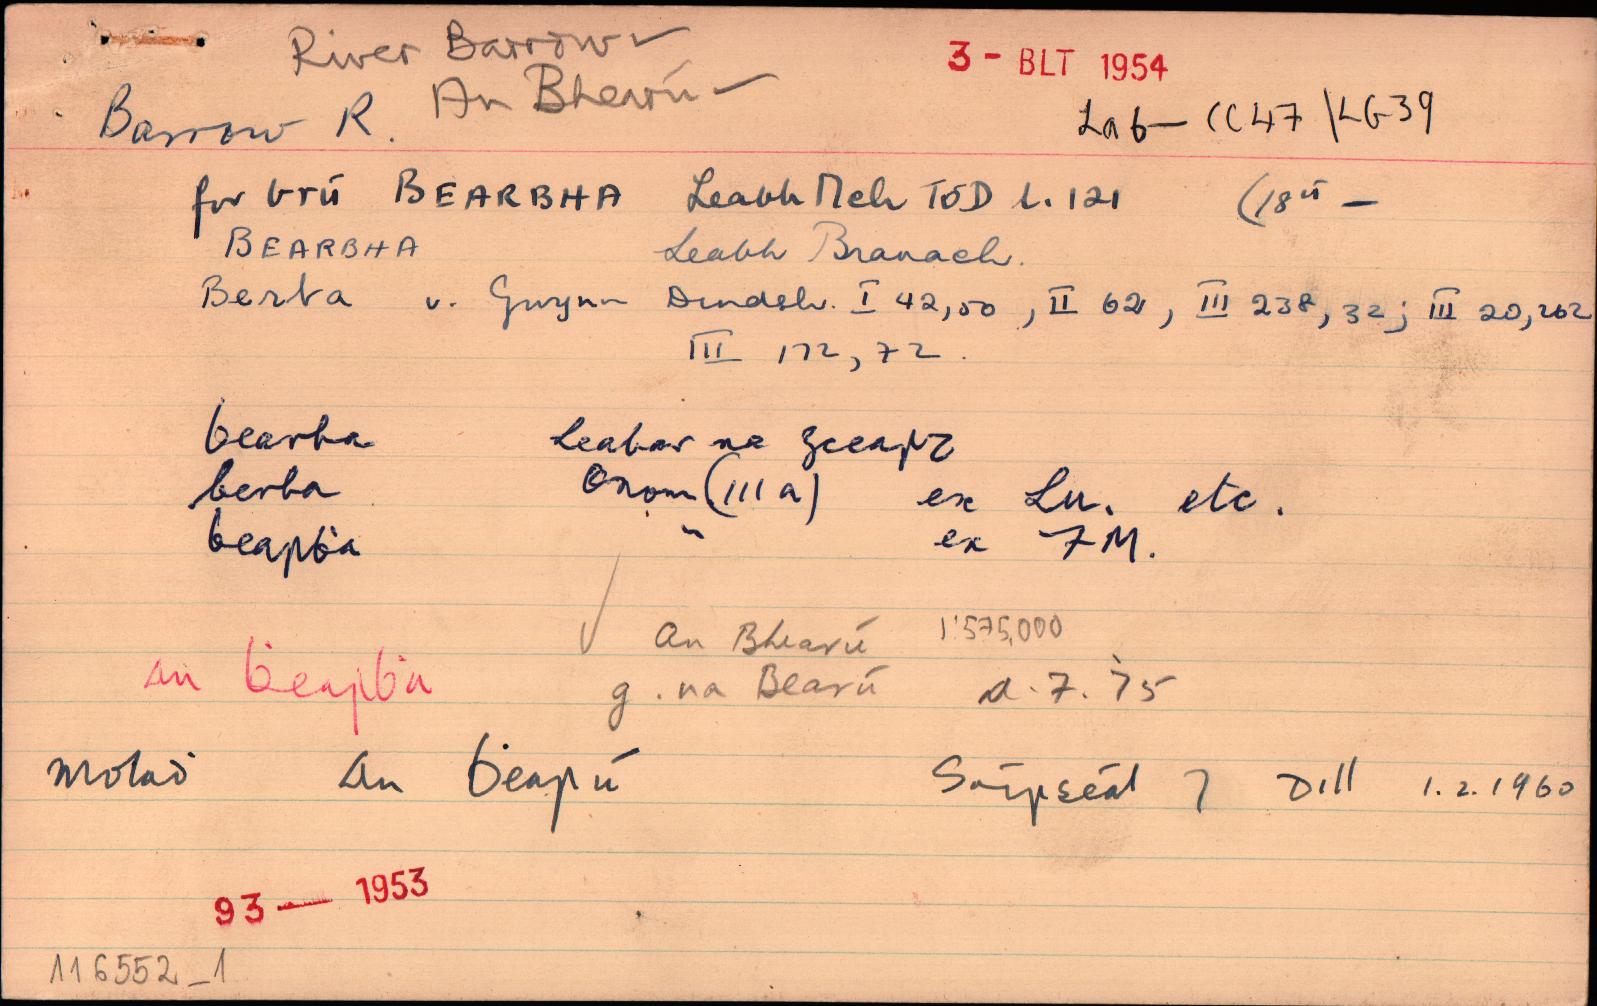 River Barrow
3 - BLT 1954
An Bhearú
Barrow R.
Lab- CC47 \LG39
for brú BEARBHA Leabh Mch TÓD l. 121 (18ú -
BEARBHA Leabh Branach.
Berba v. Gwynn Dindsh. I 42,50, II 62, III 238, 32; III 20,262
III 172, 72.
bearba Leabar na gceart
berba Onom (III a) ex Lu. etc.
bearḃa " ex FM.
An Bhearú 1:575,000
an ḃearḃa
g. na Bearú d. 7. '75
molaḋ An ḃearú Suirḃéal 7 Dill 1.2.1960
93 — 1953
116552_1